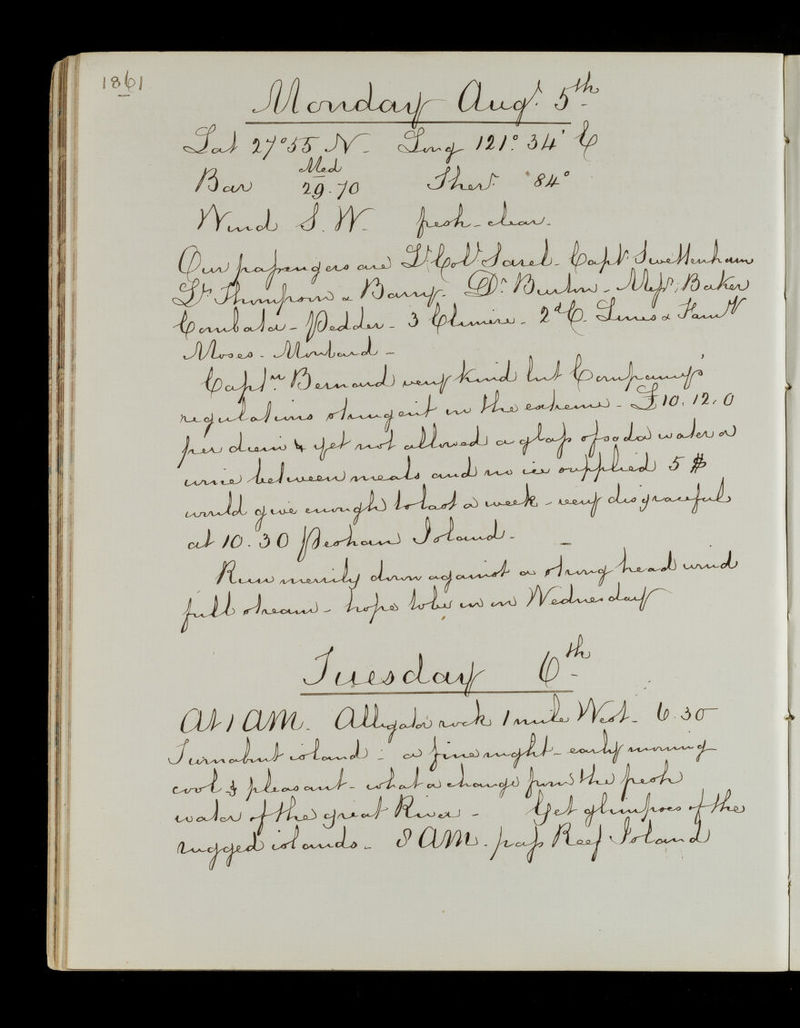 1861
Monday Augt. 5th
Lat 27°55 N - Long 121°. 34' E
Med
Bar 29.70 Thert. 84°
Wind S. W. - fresh - clear.
Our passengers are Lt Col Sarel - Capt Swettenham
Lts Thompson & Barry. Dr. Burton - Messrs. Baker
- Pedder - 3 - 2d C. Lines &
Moses -
Captn Bernard very kind but Company's
regulations stringent in the extreme - £10.12.0
per diem & yet not allowed a glass of soda water or
wine between meals and no ice supplied 5 $
would give enough to last a week - very disgraceful
at 10.30 Peshan Island -
Run merrily down against a strong head wind
full steam - hope to be in on Wednesday
Tuesday 6th
At 1 AM. Alligator rock 1 mile West - 6.30
Turnabout island - a fine night - early morning
cool & pleasant - what a change from the fresh
water of the great River - Get glimpses of the
rugged islands - 8 AM. pass Reef Island